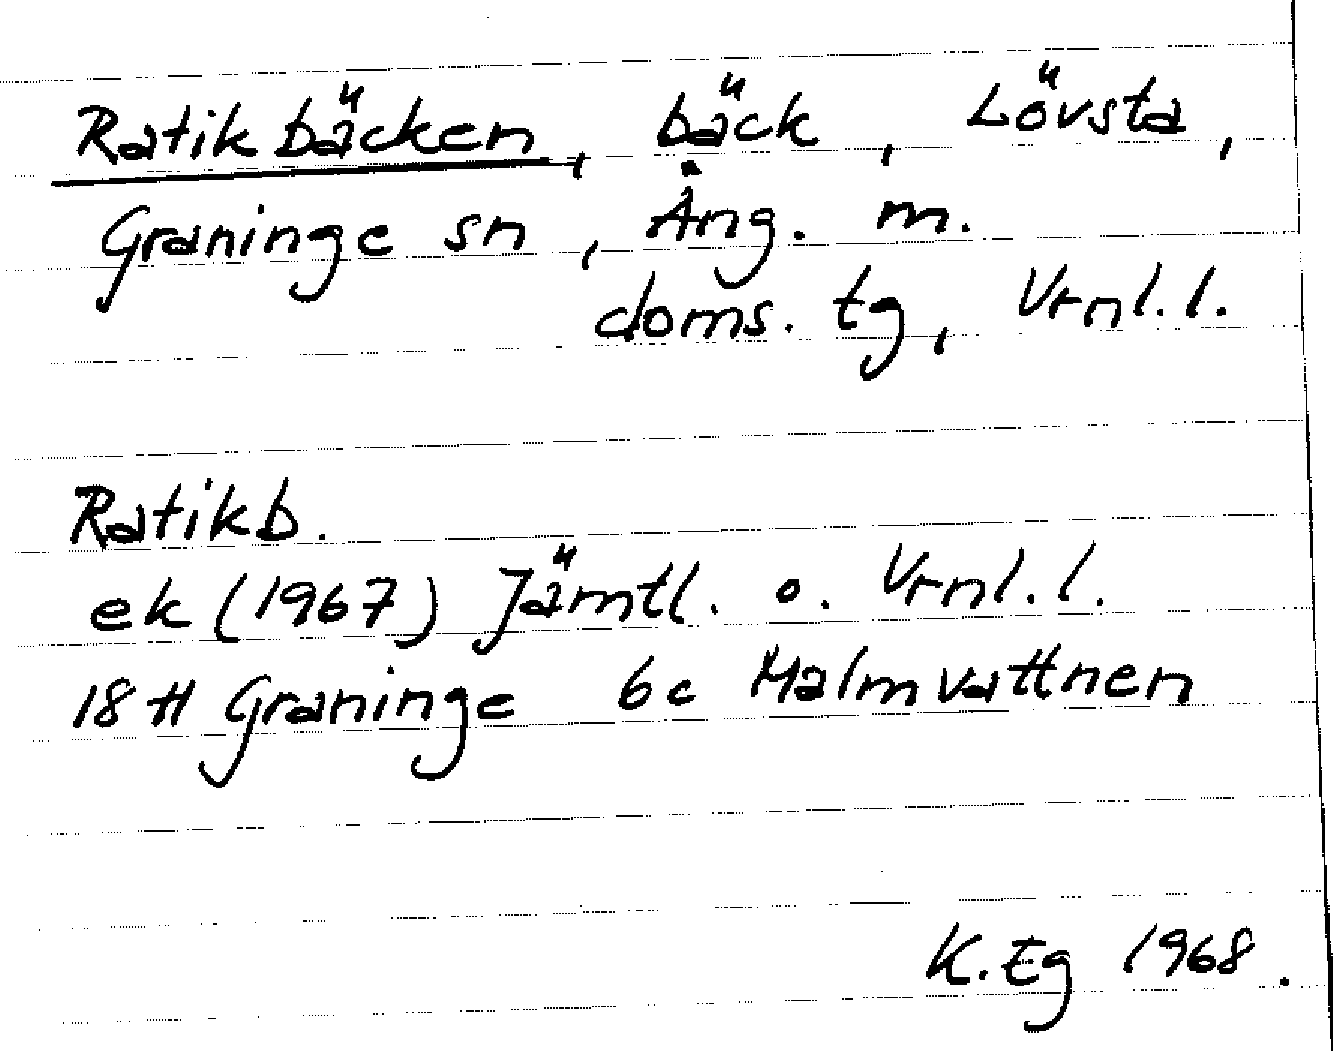 Ratikbäcken, bäck, Lövsta,
Graninge sn, Ång. m.
doms. tg, Vrnl. l.
Ratikb.
ek (1967) Jämtl. o. Vrnl. l.
18H Graninge 6c Malmvattnen
K. Eg 1968.